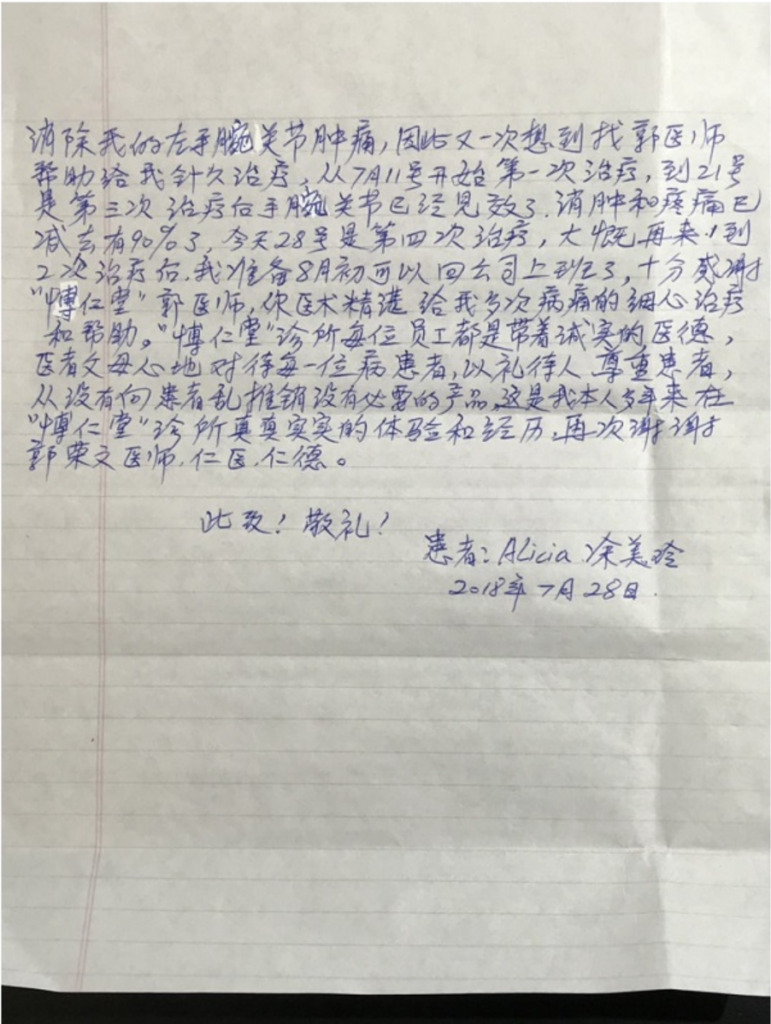 消除我的左手腕关节肿痛，因此又一次想到找郭医师
帮助给我针灸治疗，从7月11号开始第一次治疗，到21号
是第三次治疗后手腕关节已经见效了，消肿和疼痛已
减去有90%了，今天28号是第四次治疗，大慨再来1到
2次治疗后，我准备8月初可以回公司上班了，十分感谢
“博仁堂”郭医师，你医术精湛给我多次病痛的细心治疗
和帮助。“博仁堂”诊所每位员工都是带着诚实的医德，
医者父母心地对待每一位病患者，以礼待人尊重患者，
从没有向患者乱推销没有必要的产品，这是我本人多年来在
“博仁堂”诊所真真实实的体验和经历，再次谢谢
郭荣文医师.仁医.仁德。
此致！敬礼！
患者：Alicia 涂美玲
2018年7月28日.